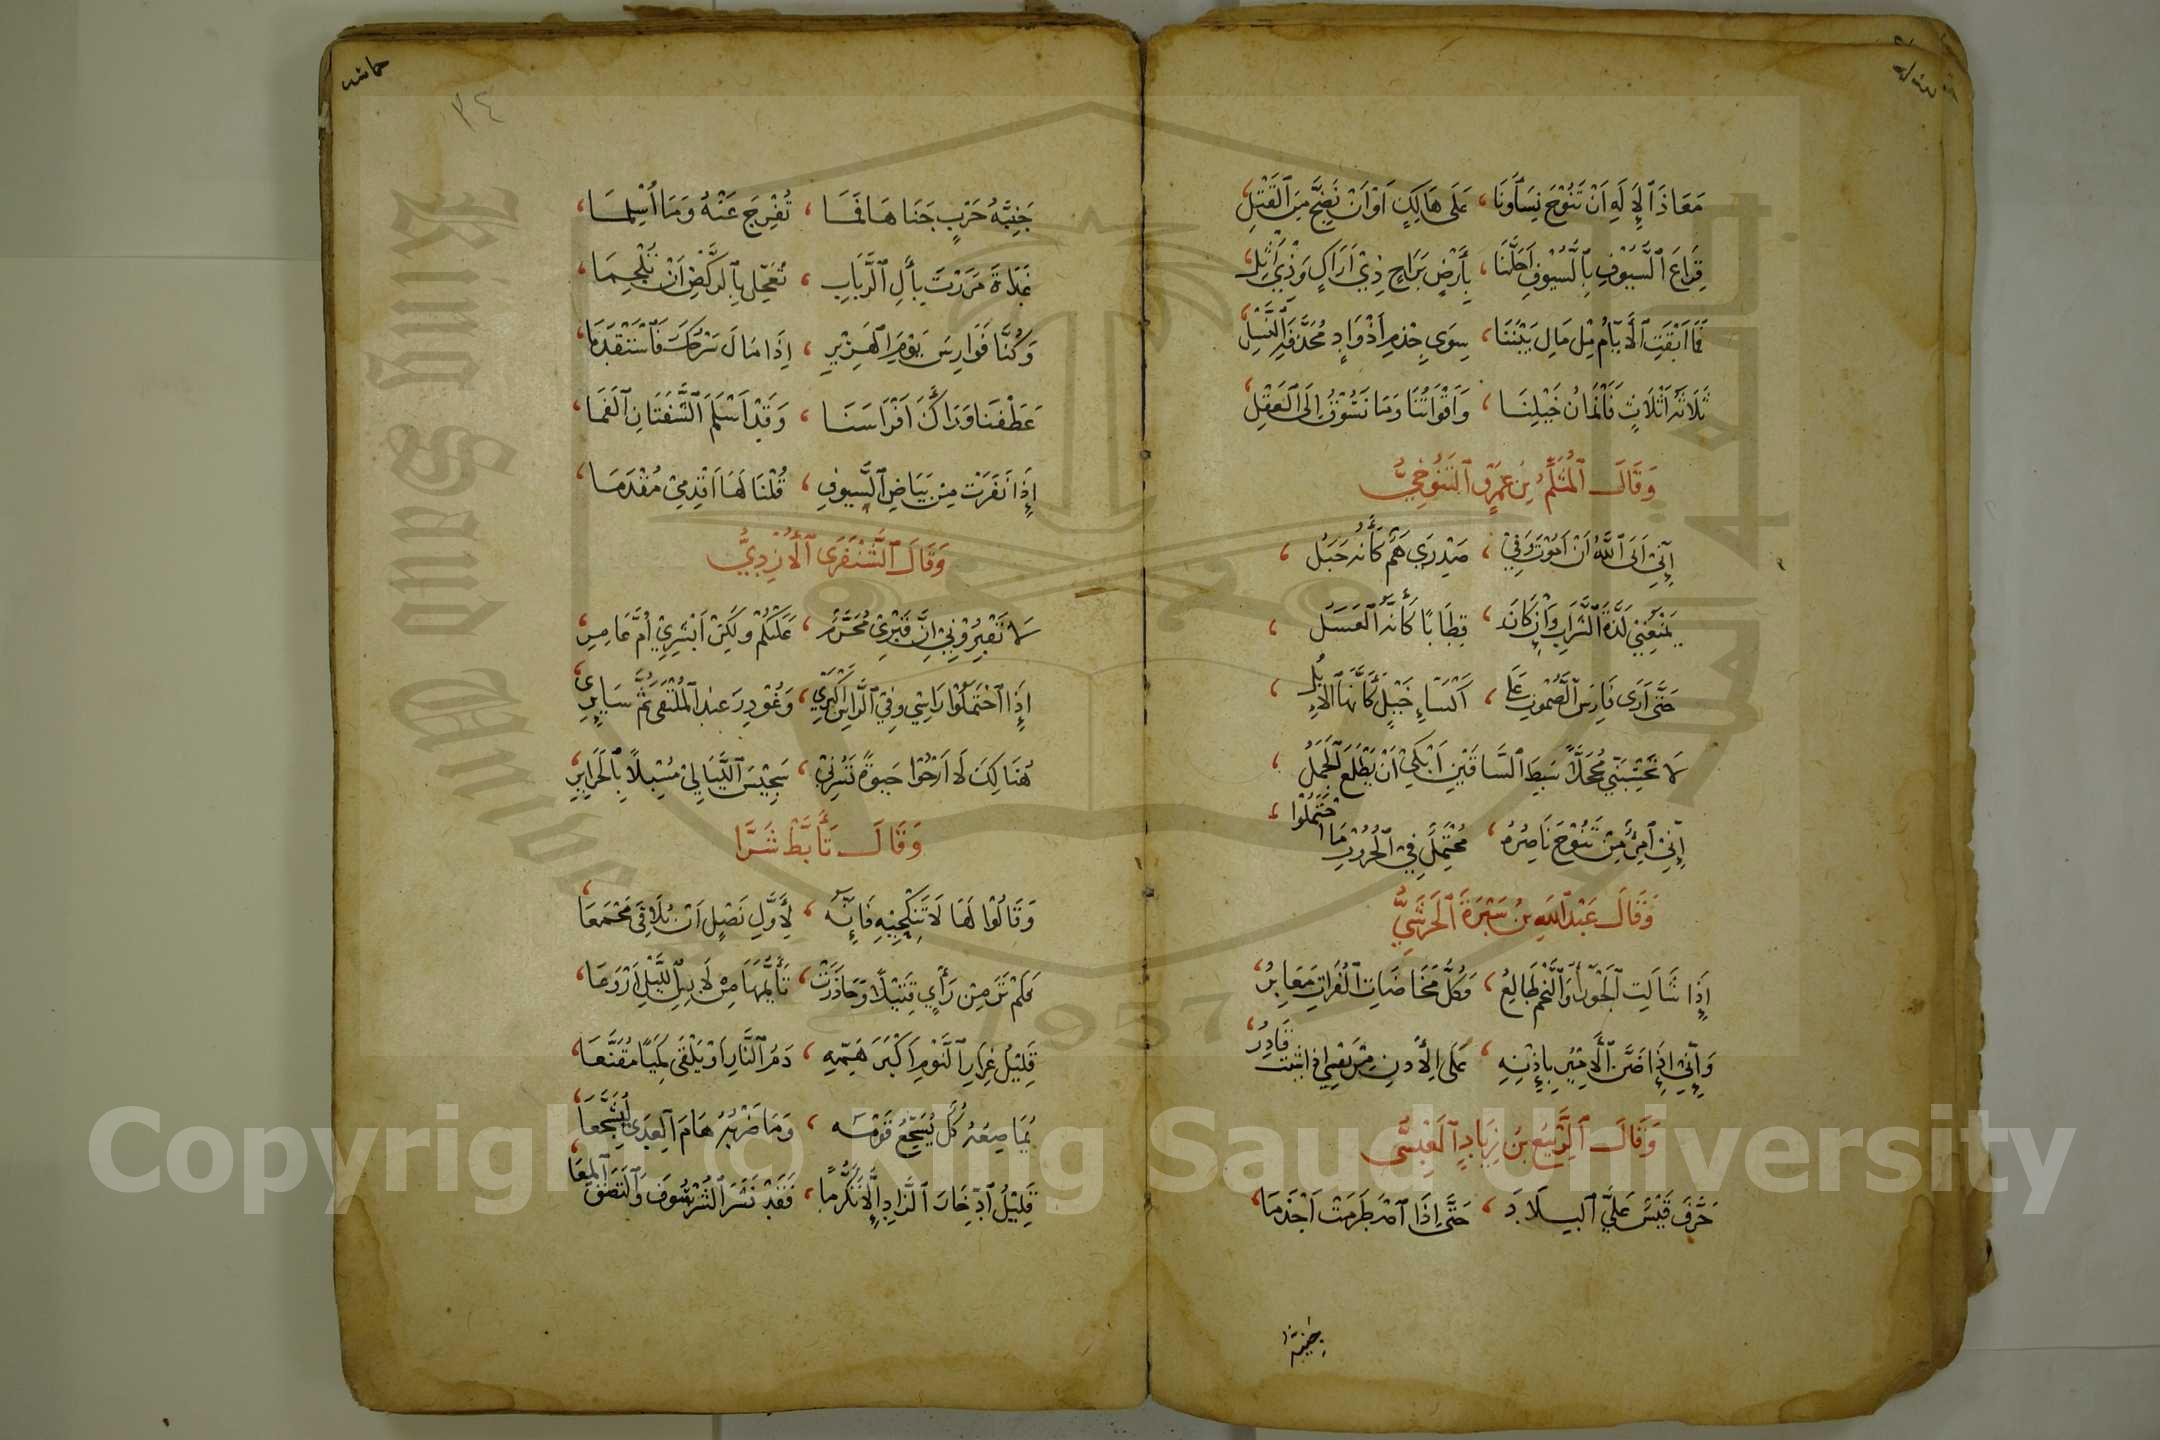 مَعَاذَ ٱلْإِلَهِ اَنْ تَنُوْحَ نِسَاؤُنَا ، عَلَى هَالِكٍ اَوْ اَنْ نَضِجَّ مِنَ ٱلْقَتْلِ
قِرَاعَ ٱلسُّيُوْفِ بِٱلسُّيُوْفِ اَحَلَّنَا ، بِأَرْضٍ بَرَاحٍ ذِيْ اَرَاكٍ وَذِيْ اَثْلِ
فَمَا اَبْقَتِ ٱلْأَيَّامُ مِلْ مَالِ عِنْدَنَا ، سِوَى جِذْمِ اَذْوَادٍ مُحَذَّفَةِ ٱلنَّسْلِ
ثَلَاثَةُ اَثْلَاثٍ فَاَثْمَانُ خَيْلِنَا ، وَاَقْوَاتُنَا وَمَا نَسُوْقُ اِلَى ٱلْعَقْلِ
وَقَالَ ٱلْمُثَلَّمُ بْنُ عَمْرٍو ٱلتَّنُوْخِيُّ
إِنِّيْ اَبَى ٱللَّهُ اَنْ اَمُوْتَ وَفِيْ ، صَدْرِيْ هَمٌّ كَأَنَّهُ جَبَلُ ،
يَمْنَعُنِيْ لَذَّةَ ٱلشَّرَابِ وَاِنْ كَانَ ، قِطَابًا كَأَنَّهُ ٱلْعَسَلُ ،
حَتَّى اَرَى فَارِسَ ٱلصَّمُوْتِ عَلَى ، اَكْسَاءِ خَيْلٍ كَأَنَّهَا ٱلْاِبِلُ ،
لَا تَحْسِبَنِّيْ مُحَجَّلًا سَبِطَ ٱلسَّاقَيْنِ اَبْكِيْ اَنْ يَظْلَعَ ٱلْجَمَلُ ،
اِنِّيْ ٱمْرُؤٌ مِنْ تَنُوْخَ نَاصِرُهُ ، مُحْتَمِلٌ فِي ٱلْحُرُوْبِ مَا ٱحْتَمَلُوْا ،
وَقَالَ عَبْدُ ٱللَّهِ بْنُ سَبْرَةَ ٱلْحَرَشِيُّ
إِذَا شَالَتِ ٱلْجَوْزَاءُ وَٱلنَّجْمُ طَالِعُ ، وَكُلُّ مَخَاضَاتِ ٱلْفُرَاتِ مَعَابِرُ ،
وَاِنِّيْ اِذَا ضَنَّ ٱلْأَمِيْرُ بِإِذْنِهِ ، عَلَى الْأِذْنِ مِنْ نَفْسِي اِذَا شِئْتُ قَادِرُ ،
وَقَالَ ٱلرَّبِيْعُ بْنُ زِيَادٍ ٱلْعَبْسِيُّ
حَرَّقَ قَيْسٌ عَلَيَّ ٱلْبِلَادَ ، حَتَّى اِذَا ٱضْطَرَمَتْ اَجْذَمَا ،
جَنِيَّةُ
٣٤
جَنِيَّةُ حَرْبٍ جَنَاهَا فَمَا ، تُفْرِجَ عَنْهُ وَمَا اُسْلِمَا ،
غَدَاةَ مَرَرْتَ بِأَلِ ٱلرَّبَابِ ، تُعَجِّلُ بِٱلرَّكْضِ اَنْ تُلْجِمَا ،
وَكُنَّا فَوَارِسَ يَوْمِ ٱلْهَرِيْرِ ، اِذَا مَالَ سَرْجُكَ فَٱسْتَقْدَمَا ،
عَطَفْنَا وَرَاءَكَ اَفْرَاسَنَا ، وَقَدْ اَسْلَمَ ٱلشَّفَتَانِ ٱلْفَمَا ،
إِذَا نَفَرَتْ مِنْ بَيَاضِ ٱلسُّيُوْفِ ، قُلْنَا لَهَا اَقْدِمِيْ مُقْدَمَا ،
وَقَالَ ٱلشَّنْفَرَى ٱلْأَزْدِيُّ
لَا تَقْبُرُوْنِيْ اِنَّ قَبْرِيْ مُحَرَّمٌ ، عَلَيْكُمْ وَلٰكِنْ اَبْشِرِيْ اُمَّ عَامِرِ ،
إِذَا ٱحْتَمَلُوْا رَاسِيْ وَفِي ٱلرَّاسِ اَكْثَرِيْ ، وَغُوْدِرَ عِنْدَ ٱلْمُلْتَقَى ثَمَّ سَايِرِيْ ،
هُنَالِكَ لَا اَرْجُوْا حَيٰوةً تَسُرُّنِيْ ، سَجِيْسَ ٱللَّيَالِيْ مُبْسَلًا بِٱلْجَرَايِرِ ،
وَقَالَ تَأَبَّطَ شَرًّا
وَقَالُوْا لَهَا لَا تَنْكِحِيْهِ فَإِنَّهُ ، لِأَوَّلِ نَصْلٍ اَنْ يُلَاقِيَ مَجْمَعَا ،
فَلَمْ تَرَ مِنْ رَأْيٍ فَتِيْلًا وَحَاذَرَتْ ، تَأَيُّمَهَا مِنْ لَابِسِ ٱللَّيْلِ اَرْوَعَا ،
قَلِيْلُ غِرَارِ ٱلنَّوْمِ اَكْبَرُ هَمِّهِ ، دَمُ ٱلثَّارِ اَوْ يَلْقَى كَمِيًّا مُقَنَّعَا ،
يُمَاصِعُهُ كُلٌّ يُشَجِّعُ قَوْمَهُ ، وَمَا ضَرْبُهُ هَامَ ٱلْعِدَى لِيُشَجَّعَا ،
قَلِيْلُ ٱدِّخَارِ ٱلزَّادِ اِلَّا تَكَرُّمًا ، فَقَدْ نَشَزَ ٱلشُّرْسُوْفُ وَٱلْتَصَقَ ٱلْمِعَا ،
King Saud University
1957
Copyright © King Saud University